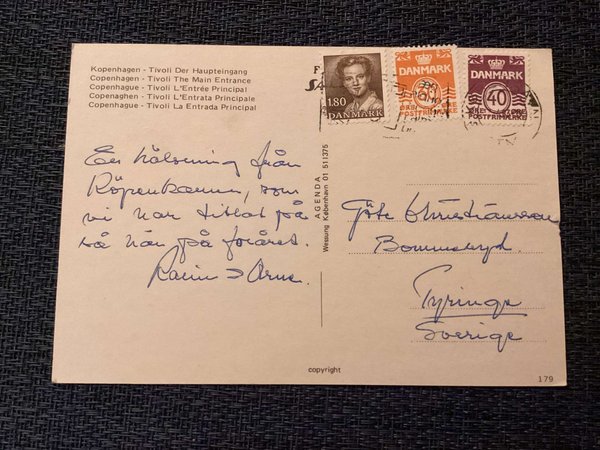 Kopenhagen - Tivoli Der Haupteingang
Copenhagen - Tivoli The Main Entrance
Copenhague - Tivoli L'Entrée Principal
Copenaghen - Tivoli L'Entrata Principale
Copenhague - Tivoli La Entrada Principal
1.80
DANMARK
DANMARK
DANMARK
40
POSTFRIMÆRKE
POSTFRIMÆRKE
En hälsning från
Köpenhamn, som
vi har tittat på
så här på foråret.
Karin & Arne
AGENDA
Wessung København 01 511375
Göte Christiansson
Bommeryd
Tyringe
Sverige
copyright
179